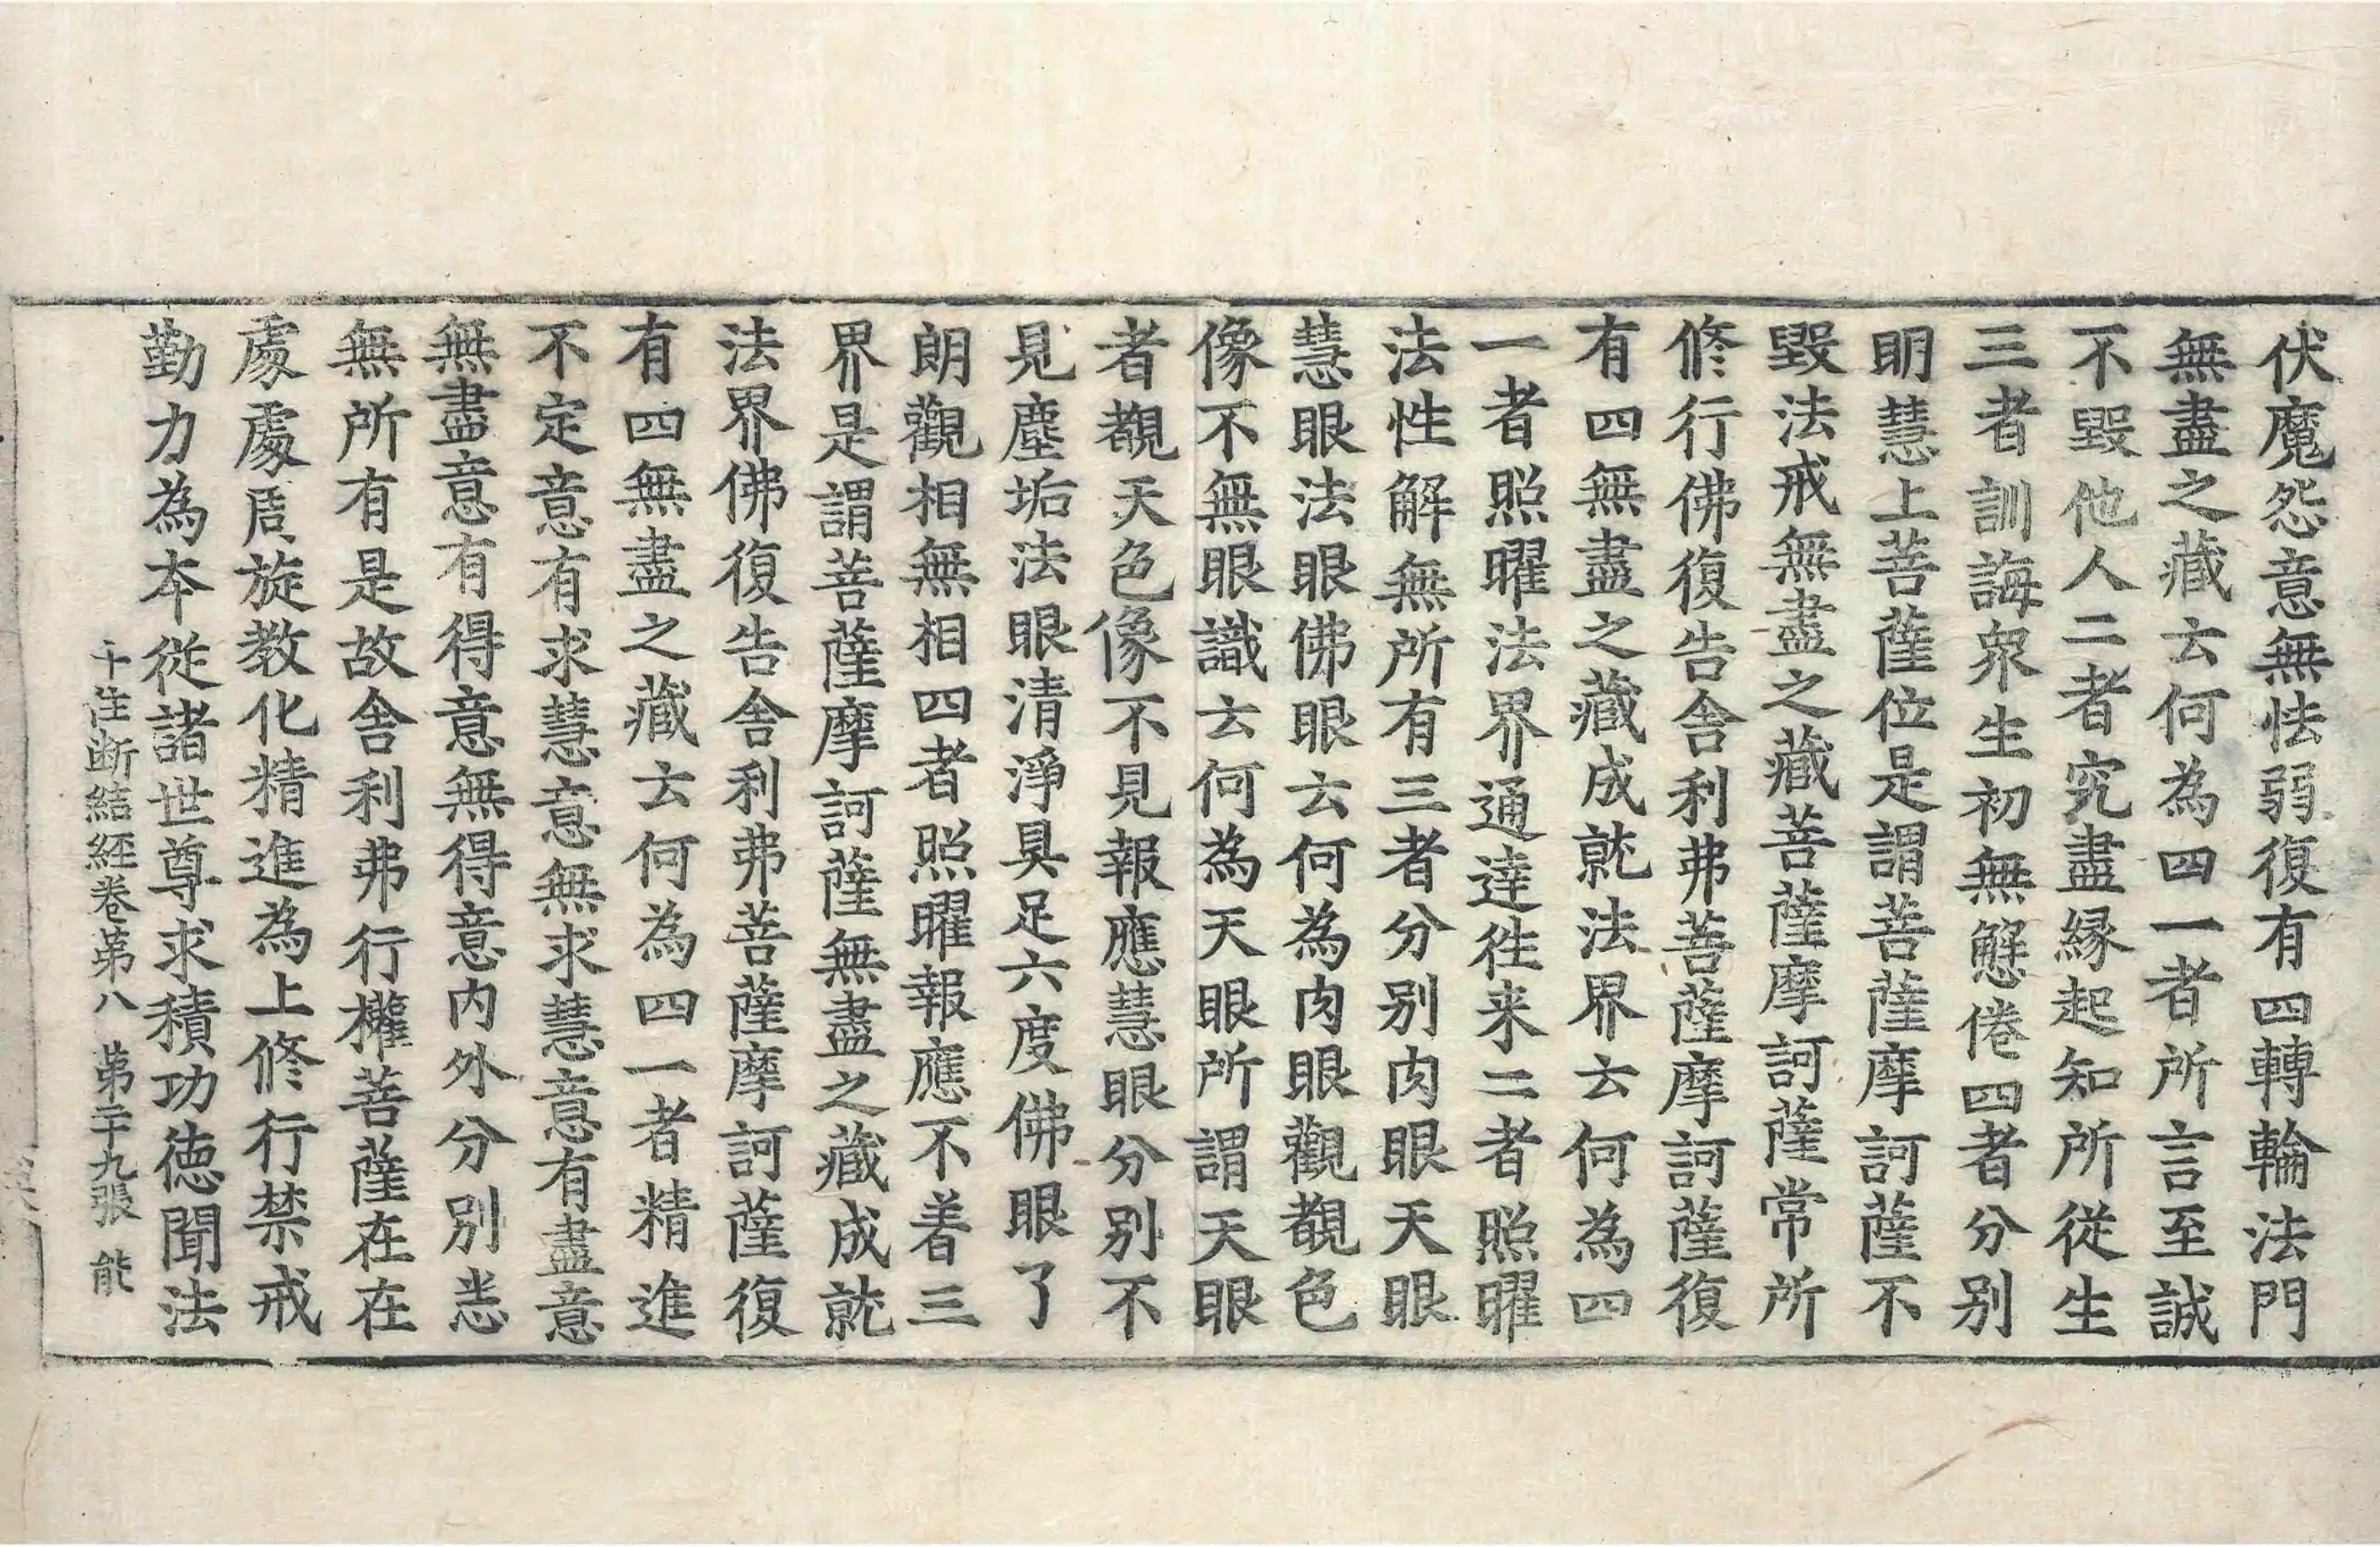 伏魔怨意無怯弱復有四轉輪法門
無盡之藏云何為四一者所言至誠
不毀他人二者究盡縁起知所從生
三者訓誨衆生初無懈倦四者分别
明慧上菩薩位是謂菩薩摩訶薩不
毀法戒無盡之藏菩薩摩訶薩常所
修行佛復告舍利弗菩薩摩訶薩復
有四無盡之藏成就法界云何為四
一者照曜法界通達徃来二者照曜
法性解無所有三者分别肉眼天眼
慧眼法眼佛眼云何為肉眼觀覩色
像不無眼識云何為天眼所謂天眼
者覩天色像不見報應慧眼分别不
見塵垢法眼清淨具足六度佛眼了
朗觀相無相四者照曜報應不著三
界是謂菩薩摩訶薩無盡之藏成就
法界佛復告舍利弗菩薩摩訶薩復
有四無盡之藏云何為四一者精進
不定意有求慧意無求慧意有盡意
無盡意有得意無得意内外分别悉
無所有是故舍利弗行權菩薩在在
處處周旋教化精進為上修行禁戒
勤力為本從諸世尊求積功徳聞法
十住断結経卷第八 第二十九張 能